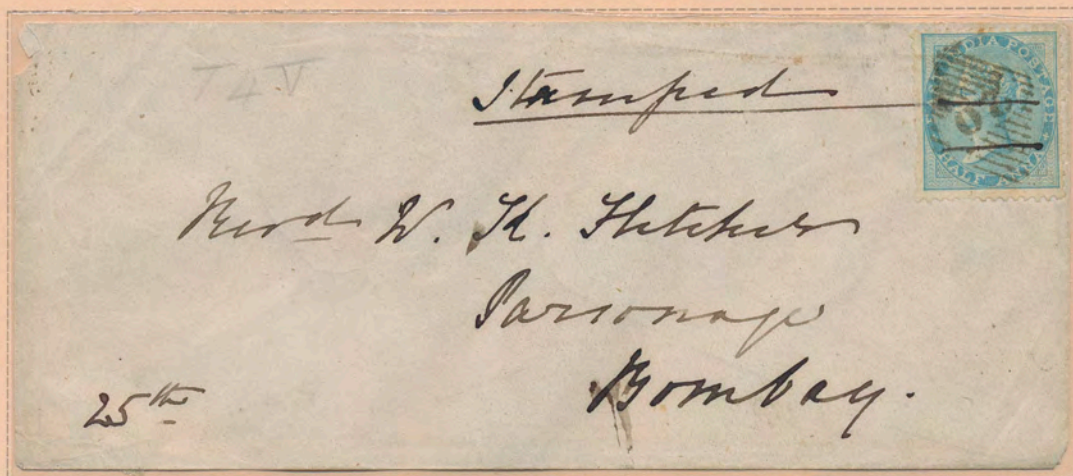 T 4 V
Stamped
INDIA POSTAGE
HALF ANNA
Revd W. K. Fletcher
Parsonage
Bombay.
25th